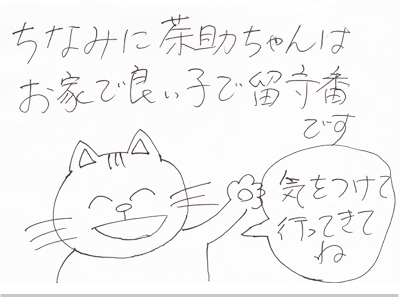 ちなみに茶助ちゃんは
お家で良い子で留守番
です
気をつけて
行ってきて
ね